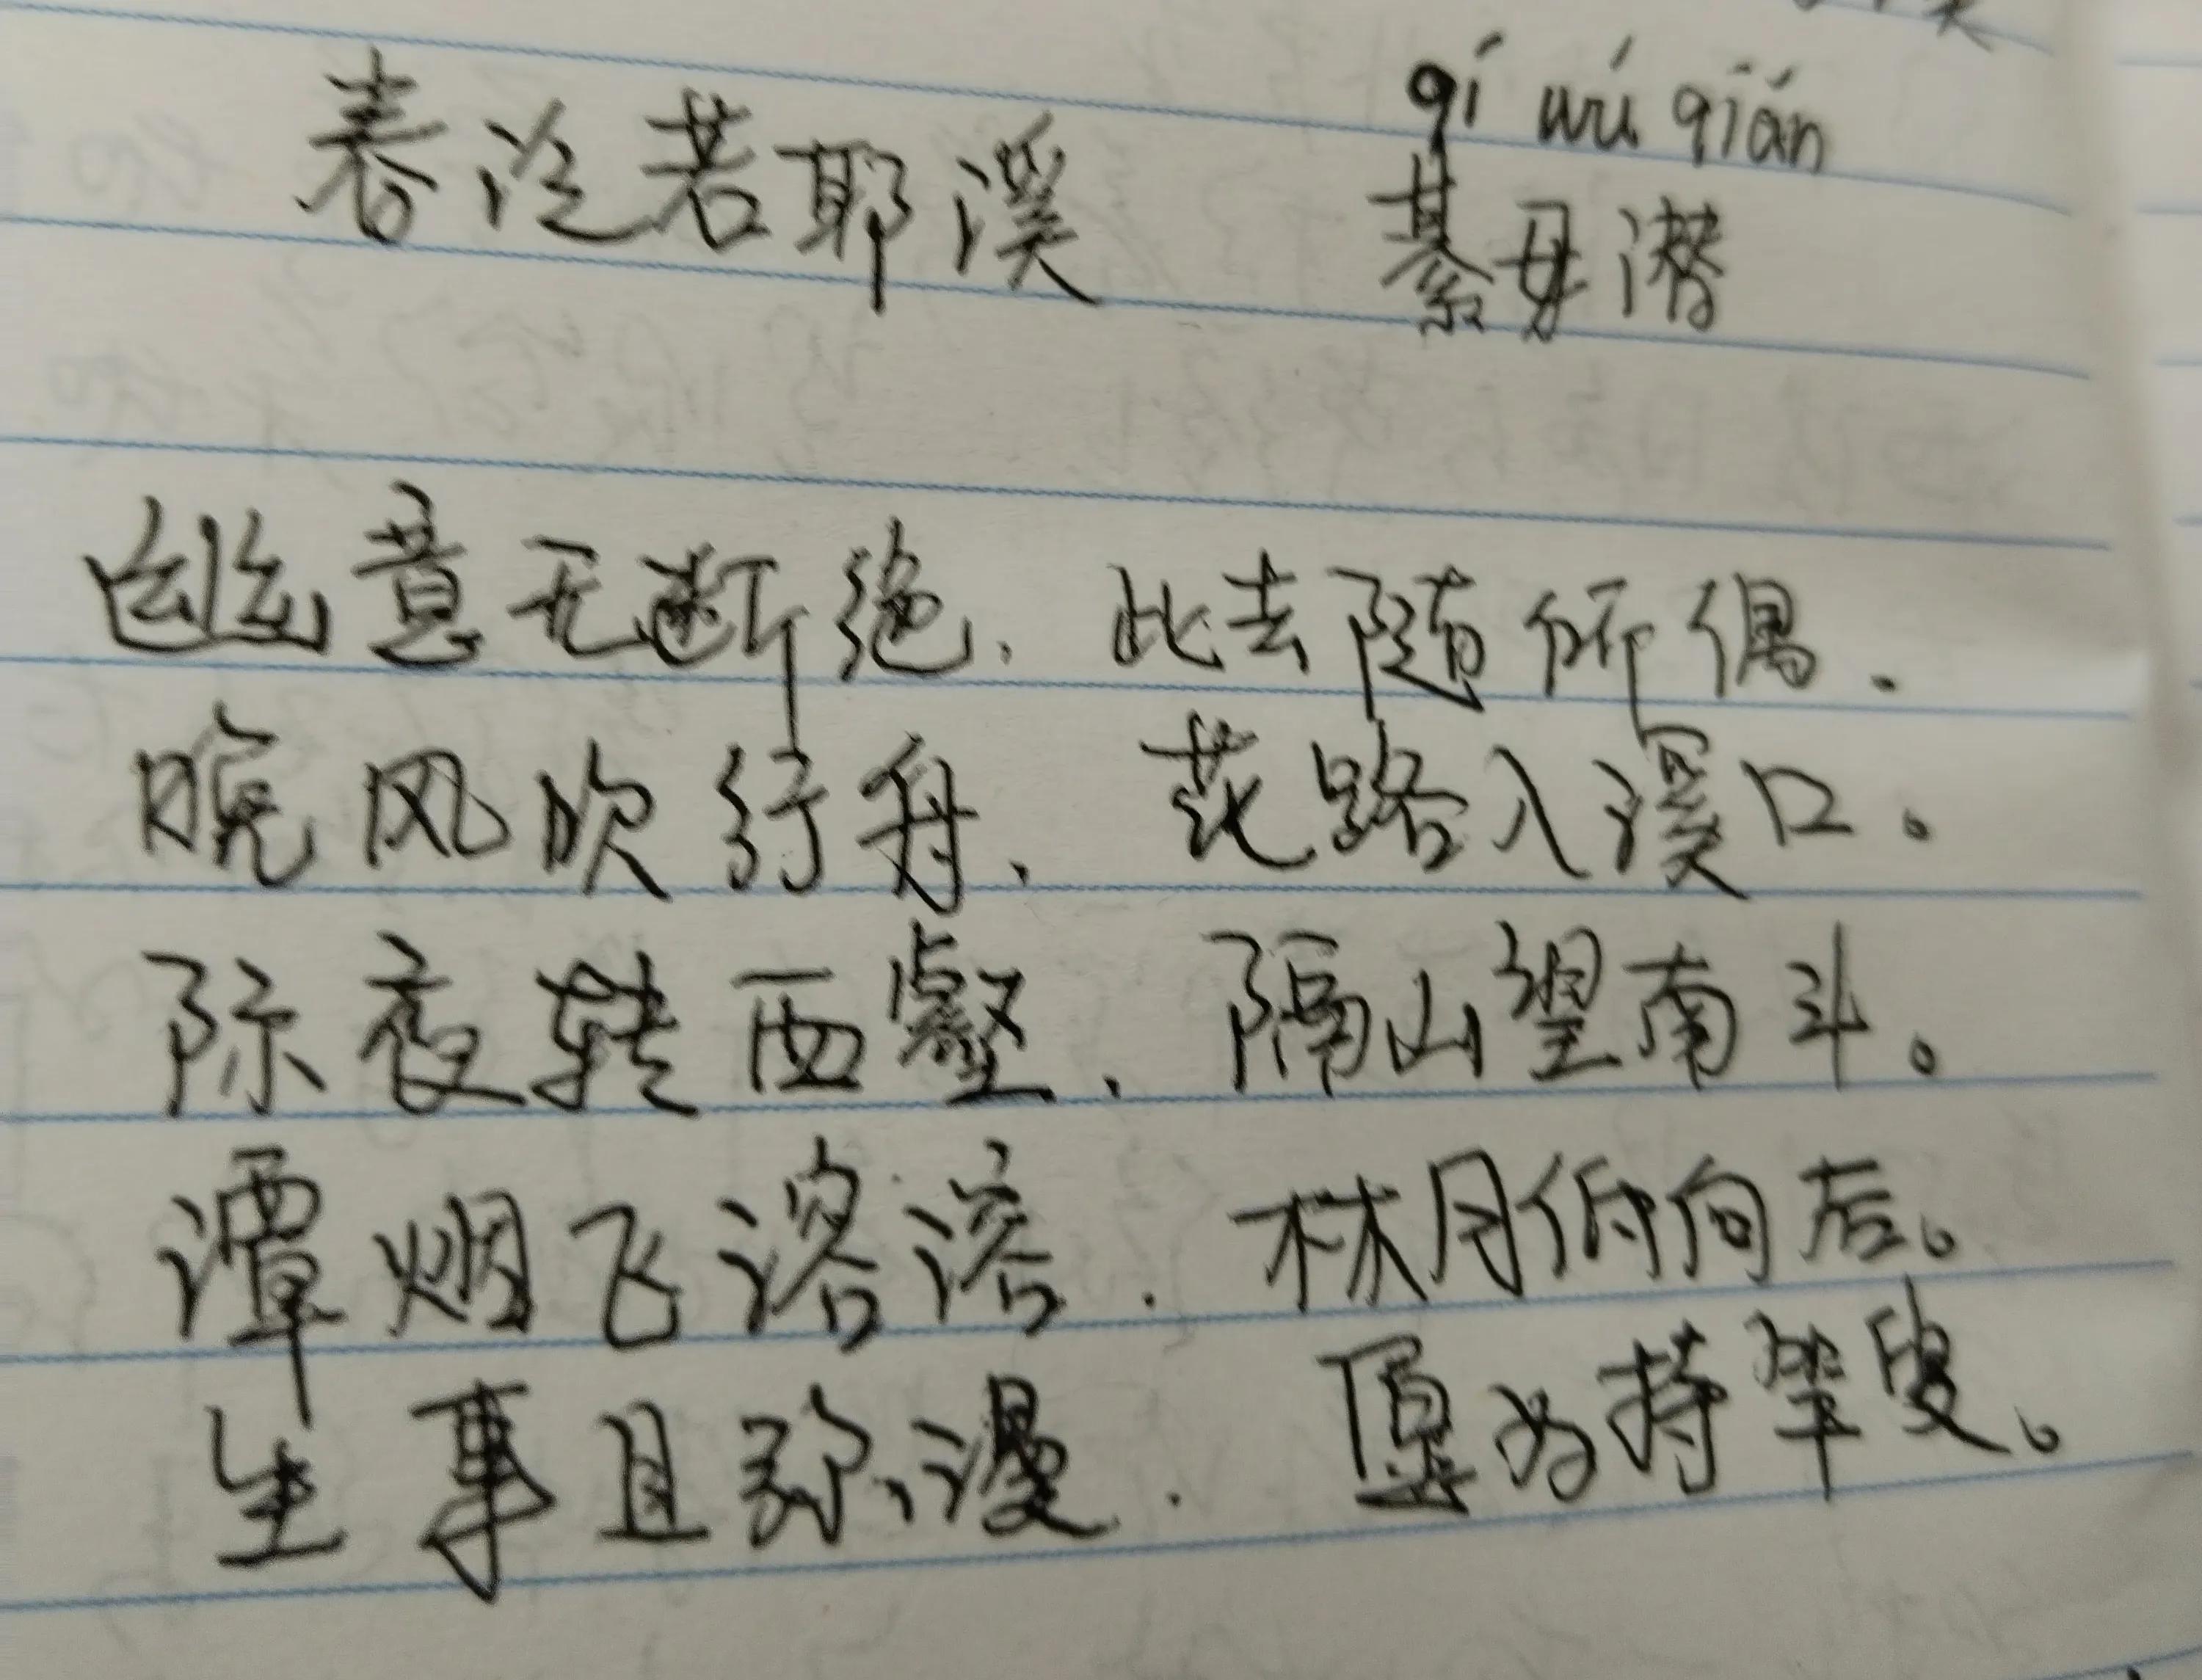 qí wú qián
春泛若耶溪 綦毋潜
幽意无断绝，此去随所偶。
晚风吹行舟，花路入溪口。
际夜转西壑，隔山望南斗。
潭烟飞溶溶，林月低向后。
生事且弥漫，愿为持竿叟。